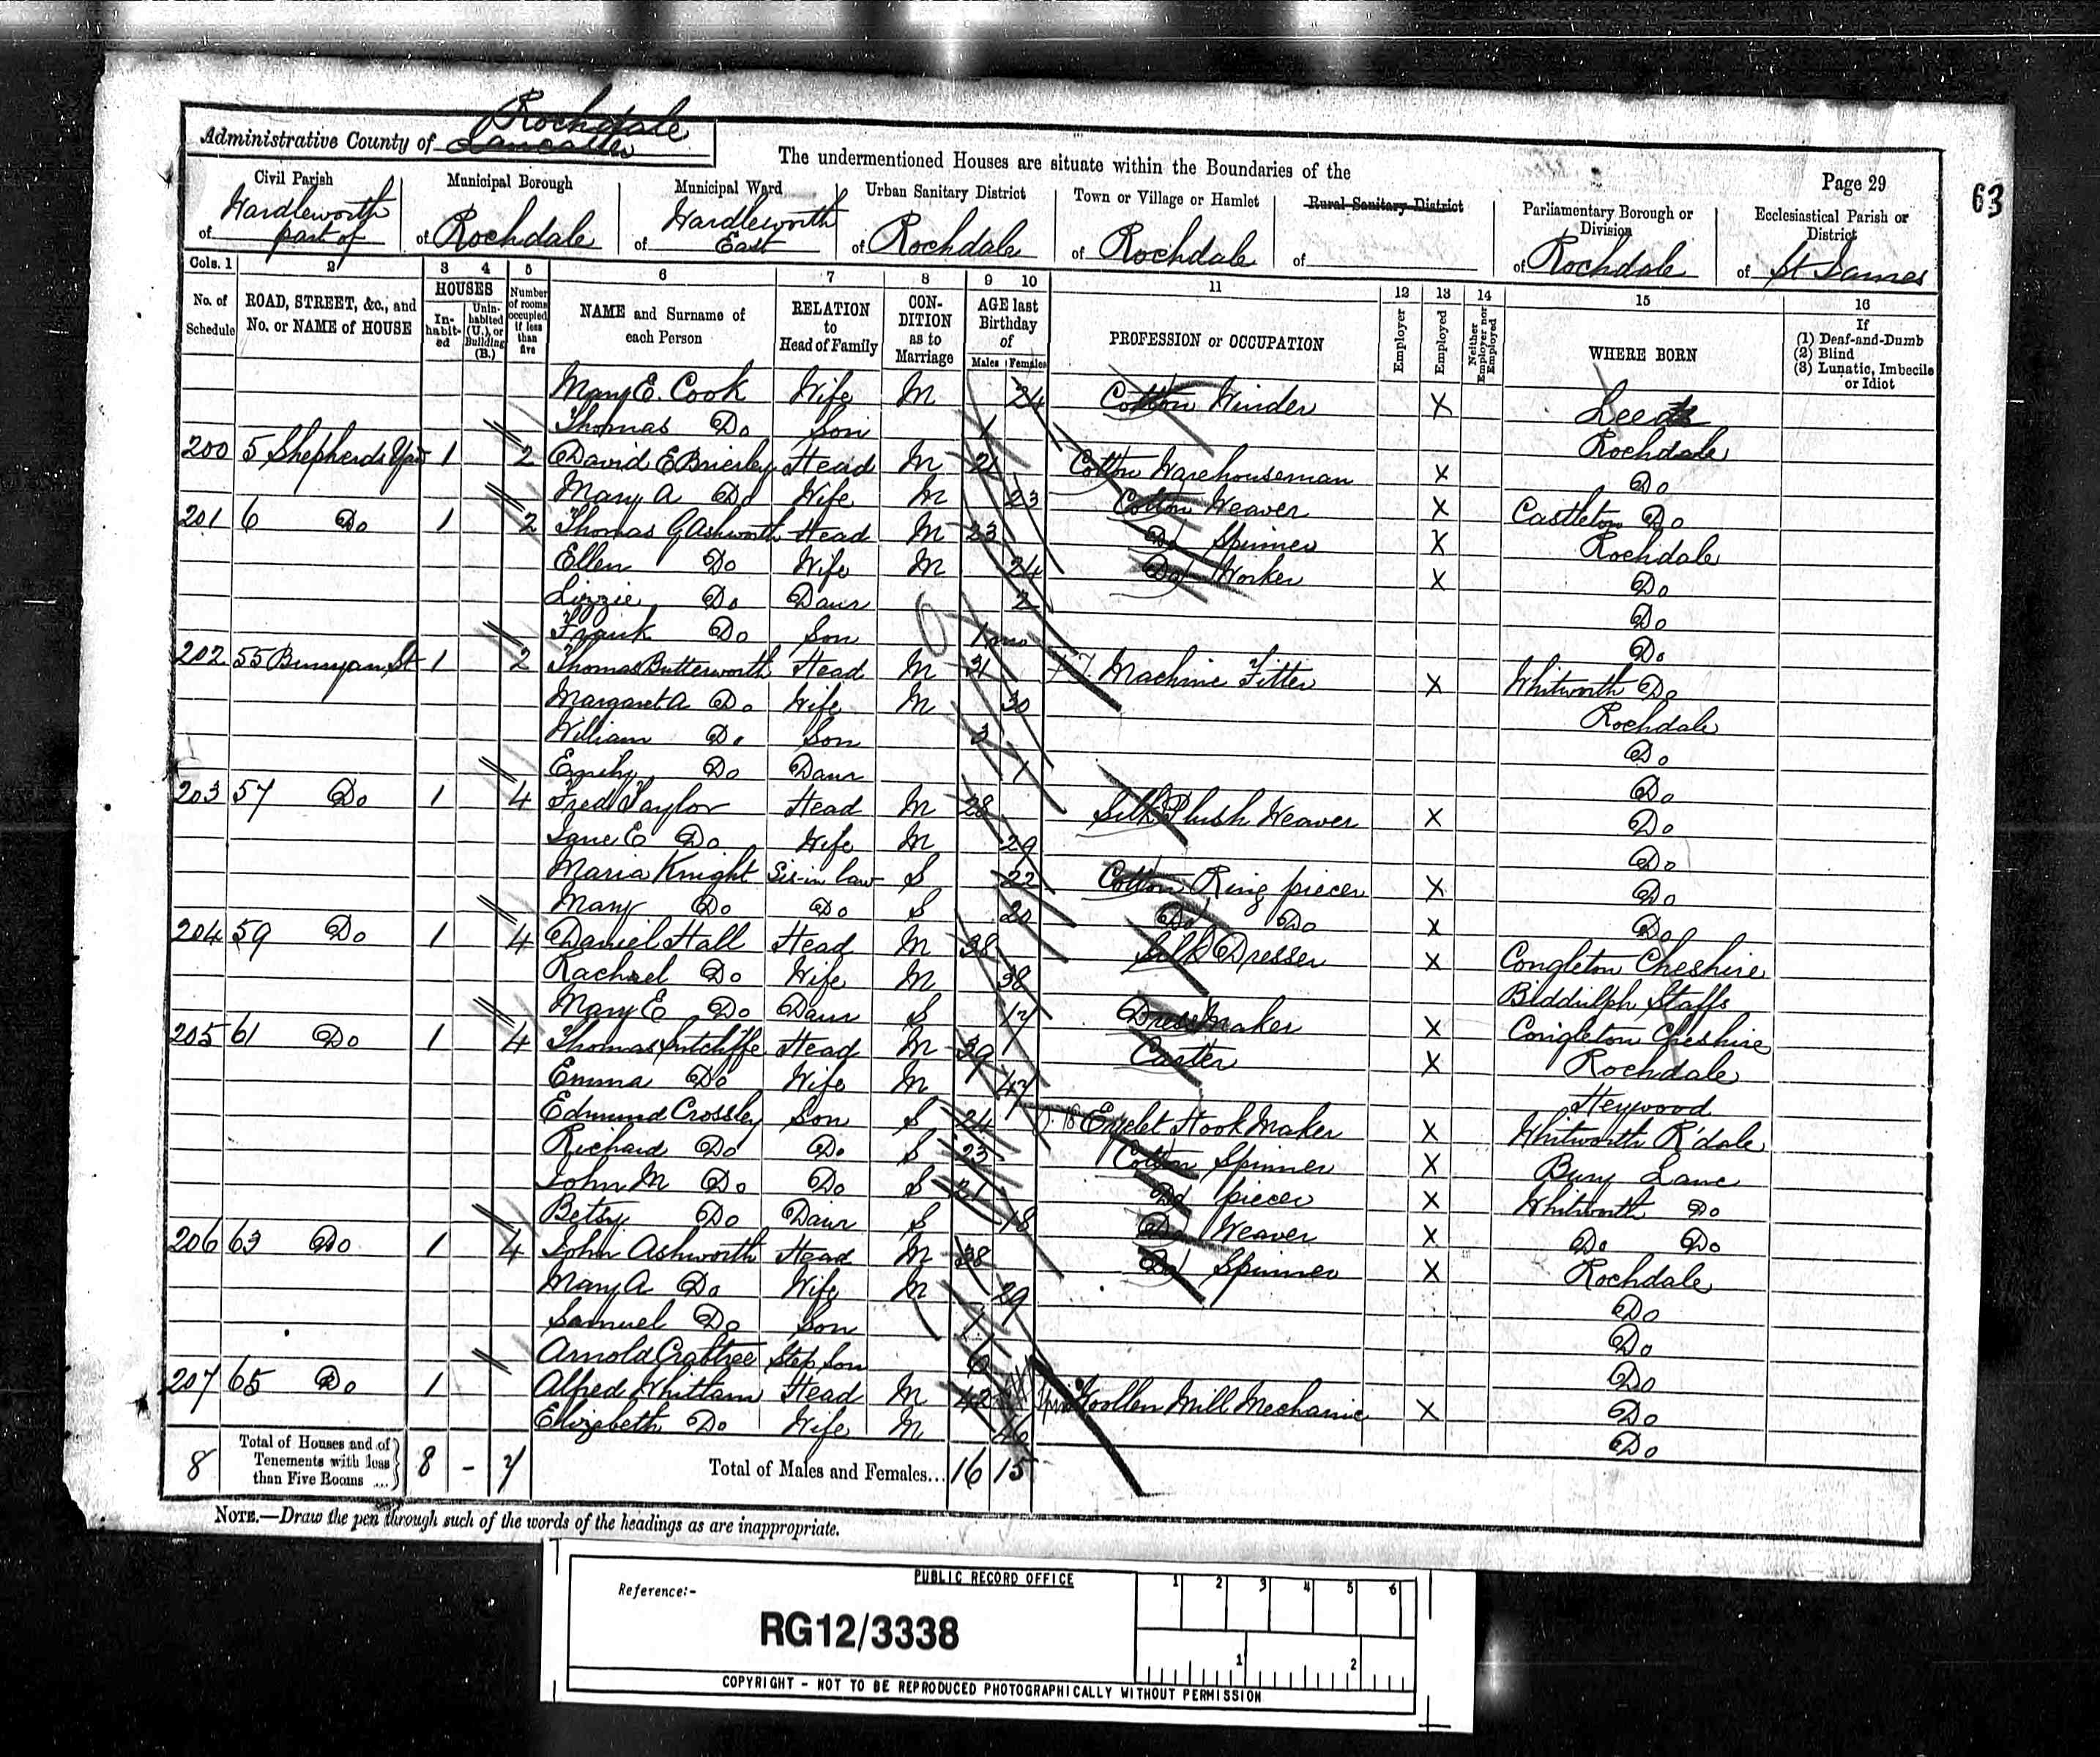 Rochdale
Administrative County of Lancaster
The undermentioned Houses are situate within the Boundaries of the
Page 29
63
Civil Parish
of Wardleworth part of
Municipal Borough
of Rochdale
Municipal Ward
of Wardleworth East
Urban Sanitary District
of Rochdale
Town or Village or Hamlet
of Rochdale
Rural Sanitary District
of
Parliamentary Borough or Division
of Rochdale
Ecclesiastical Parish or District
of St James
Cols. 1 2 3 4 5 6 7 8 9 10 11 12 13 14 15 16
No. of Schedule
ROAD, STREET, &c., and No. or NAME of HOUSE
HOUSES
In-habit-ed
Unin-habited (U.), or Building (B.)
Number of rooms occupied if less than five
NAME and Surname of each Person
RELATION to Head of Family
CON-DITION as to Marriage
AGE last Birthday of
Males Females
PROFESSION or OCCUPATION
Employer
Employed
Neither Employer nor Employed
WHERE BORN
If
(1) Deaf-and-Dumb
(2) Blind
(3) Lunatic, Imbecile or Idiot
Mary E. Cook Wife M 24 Cotton Winder X Leeds
Thomas Do Son 1 Rochdale
200 5 Shepherds Yard 1 2 David E Brierley Head M 21 Cotton Warehouseman X Do
Mary A Do Wife M 23 Cotton Weaver X Castleton Do
201 6 Do 1 2 Thomas G Ashworth Head M 23 Do Spinner X Rochdale
Ellen Do Wife M 24 Do Worker X Do
Lizzie Do Daur 2 Do
Frank Do Son 1 mo Do
202 55 Bunyan St 1 2 Thomas Butterworth Head M 31 Machine Fitter X Whitworth Do
Margaret A Do Wife M 30 Rochdale
William Do Son 3 Do
Emily Do Daur 1 Do
203 57 Do 1 4 Fred Taylor Head M 28 Silk Plush Weaver X Do
Jane E Do Wife M 29 Do
Maria Knight Sis-in law S 22 Cotton Ring piecer X Do
Mary Do Do S 20 Do Do X Do
204 59 Do 1 4 Daniel Hall Head M 38 Silk Dresser X Congleton Cheshire
Rachael Do Wife M 38 Biddulph Staffs
Mary E Do Daur S 17 Dress Maker X Congleton Cheshire
205 61 Do 1 4 Thomas Sutcliffe Head M 39 Carter X Rochdale
Emma Do Wife M 47 Heywood
Edmund Crossley Son S 24 Hook Maker X Whitworth R'dale
Richard Do Do S 23 Cotton Spinner X Bury Lanc
John M Do Do S 21 Do piecer X Whitworth Do
Betsy Do Daur S 18 Do Weaver X Do Do
206 63 Do 1 4 John Ashworth Head M 38 Do Spinner X Rochdale
Mary A Do Wife M 29 Do
Samuel Do Son 1 Do
Arnold Crabtree Step Son Do
207 65 Do 1 Alfred Whittam Head M 42 Woollen Mill Mechanic X Do
Elizabeth Do Wife M 46 Do
8 Total of Houses and of Tenements with less than Five Rooms ... 8 - 7 Total of Males and Females... 16 15
NOTE.—Draw the pen through such of the words of the headings as are inappropriate.
PUBLIC RECORD OFFICE
Reference:-
RG12/3338
1 2 3 4 5 6
1 2
COPYRIGHT - NOT TO BE REPRODUCED PHOTOGRAPHICALLY WITHOUT PERMISSION